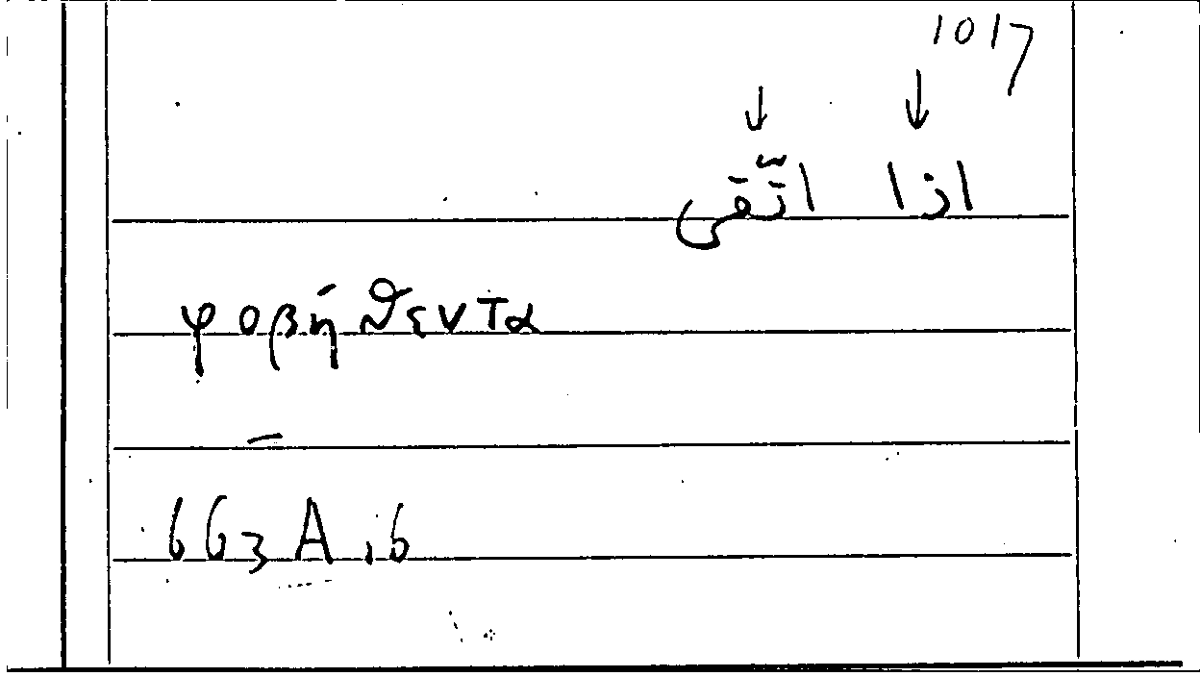 1017
↓ ↓
اذا اتّقى
φοβήθεντα
—
663 A, 6